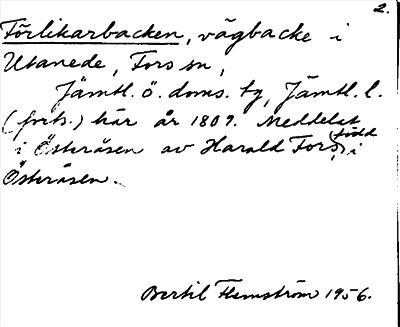 2.
Förlikarbacken, vägbacke i
Utanede, Fors sn,
Jämtl. ö. doms. tg, Jämtl. l.
(forts.) här år 1809. Meddelat
i Österåsen av Harald Fors, född i
Österåsen.
Bertil Flemström 1956.